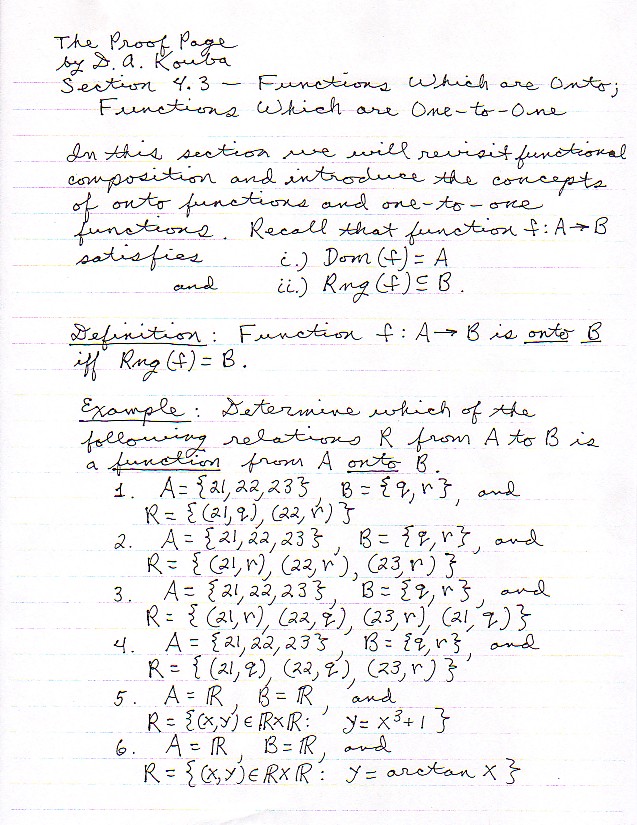 The Proof Page
by D. A. Kouba
Section 4.3 — Functions Which are Onto;
Functions Which are One-to-One
In this section we will revisit functional
composition and introduce the concepts
of onto functions and one-to-one
functions. Recall that function f: A→B
satisfies i.) Dom (f) = A
and ii.) Rng (f) ⊆ B.
Definition: Function f: A→B is onto B
iff Rng (f) = B.
Example: Determine which of the
following relations R from A to B is
a function from A onto B.
1. A = {21, 22, 23}, B = {q, r}, and
R = {(21, q), (22, r)}
2. A = {21, 22, 23}, B = {q, r}, and
R = {(21, r), (22, r), (23, r)}
3. A = {21, 22, 23}, B = {q, r}, and
R = {(21, r), (22, q), (23, r), (21, q)}
4. A = {21, 22, 23}, B = {q, r}, and
R = {(21, q), (22, q), (23, r)}
5. A = ℝ, B = ℝ, and
R = {(x, y) ∈ ℝxℝ: y = x³+1}
6. A = ℝ, B = ℝ, and
R = {(x, y) ∈ ℝxℝ: y = arctan x}